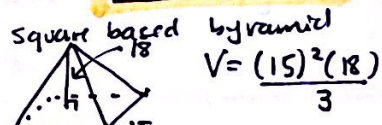 square based byramid
18
V = (15)²(18)
3